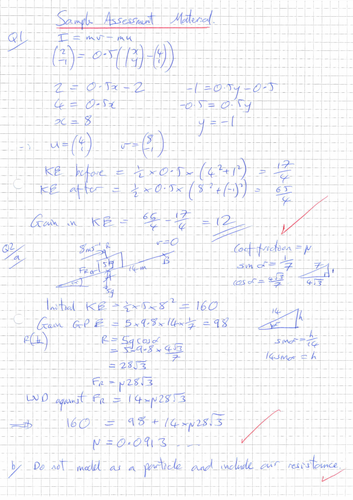 Sample Assessment Material
Q1 I = mv - mu
(2 -1) = 0.5((x y) - (4 1))
2 = 0.5x - 2 -1 = 0.5y - 0.5
4 = 0.5x -0.5 = 0.5y
x = 8 y = -1
∴ u = (4 1) v = (8 -1)
KE before = ½ × 0.5 × (4² + 1²) = 17/4
KE after = ½ × 0.5 × (8² + (-1)²) = 65/4
Gain in KE = 65/4 - 17/4 = 12
Q2
a) 8ms⁻¹ R v=0 B Coef friction = μ
5kg FR A 14m 5g sin α = 1/7 7 1
cos α = 4√3/7 4√3
Initial KE = ½ × 5 × 8² = 160
Gain GPE = 5 × 9.8 × 14 × 1/7 = 98 14 h
R(↖) R = 5g cos α sin α = h/14
= 5 × 9.8 × 4√3/7 14 sin α = h
= 28√3
FR = μ28√3
WD against FR = 14 × μ28√3
⇒ 160 = 98 + 14 × μ28√3
μ = 0.0913 ....
b) Do not model as a particle and include air resistance.